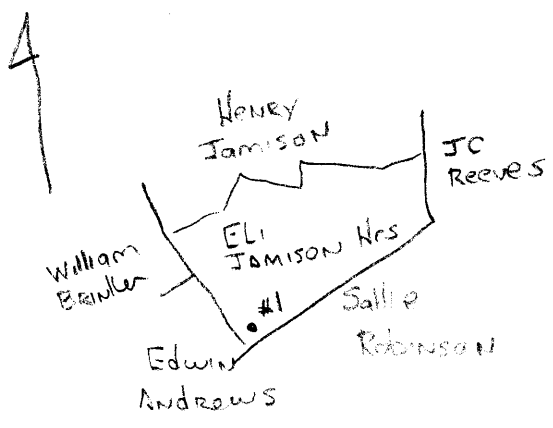 Henry
Jamison
JC
Reeves
Eli
Jamison Hrs
William
Brinker
#1
Sallie
Robinson
Edwin
Andrews